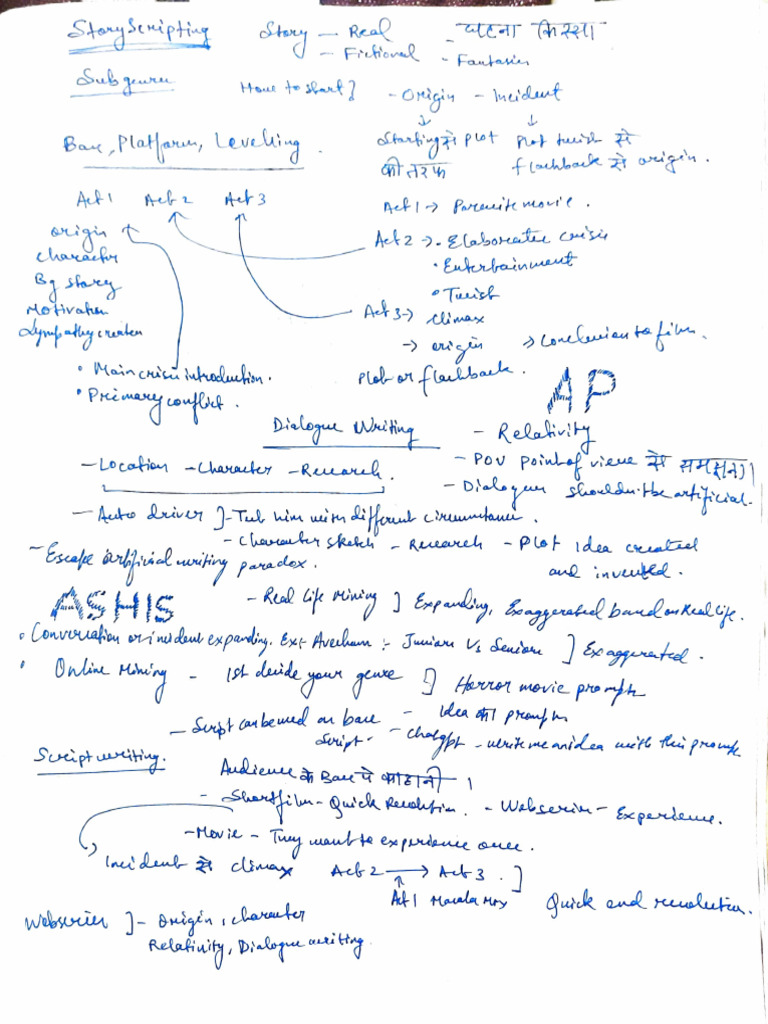 Story Scripting Story – Real - घटना किस्सा
– Fictional - Fantasies
Subgenre How to start? - Origin - Incident
↓ ↓
Base, Platform, Levelling. Starting से plot Plot twist से
की तरफ flashback से origin.
Act 1 Act 2 Act 3 Act 1 → Parasite movie.
origin Act 2 → • Elaborate crisis
character • Entertainment
Bg story • Twist
Motivation Act 3 → climax
Sympathy creation → origin → Conclusion to film.
• Main crisis introduction. Plot or flashback.
• Primary conflict. AP
Dialogue Writing - Relativity
- Location - Character - Research. - POV point of view से समझना।
- Dialogues shouldn't be artificial.
- Auto driver ]- Tub him with different circumstance.
- Character sketch - Research - Plot idea created
- Escape artificial writing paradox. and invented.
ASHIS - Real life Mining ] Expanding, Exaggerated based on Real life.
• Conversation or incident expanding. Ex:- :- Juniors Vs Seniors ] Exaggerated.
• Online Mining - 1st decide your genre ] Horror movie prompts
- Script can be used as base - Idea का prompts
script. - Chatgpt - write me an idea with this prompts
Script writing. Audience के Base पे कहानी।
- Shortfilm - Quick Resolution. - Webseries - Experience.
- Movie - They want to experience once.
Incident से climax Act 2 → Act 3. ]
↑
Act 1 Masala Mix Quick and resolution.
Webseries ]- Origin, character
Relativity, Dialogue writing.